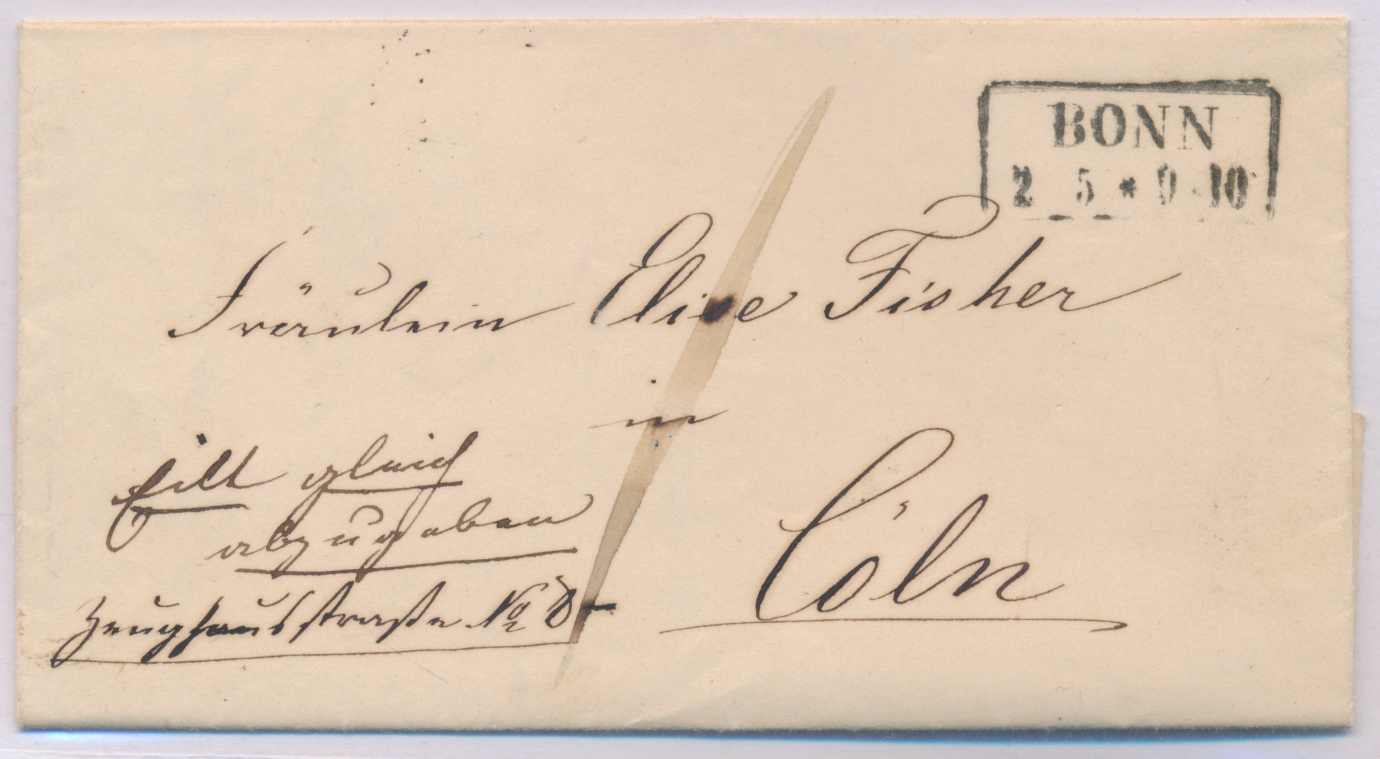 BONN
2 5 * 9-10
Fräulein Elise Fisher
in
Cöln
Eilt gleich
abzugeben
Zeughausstraße No 8